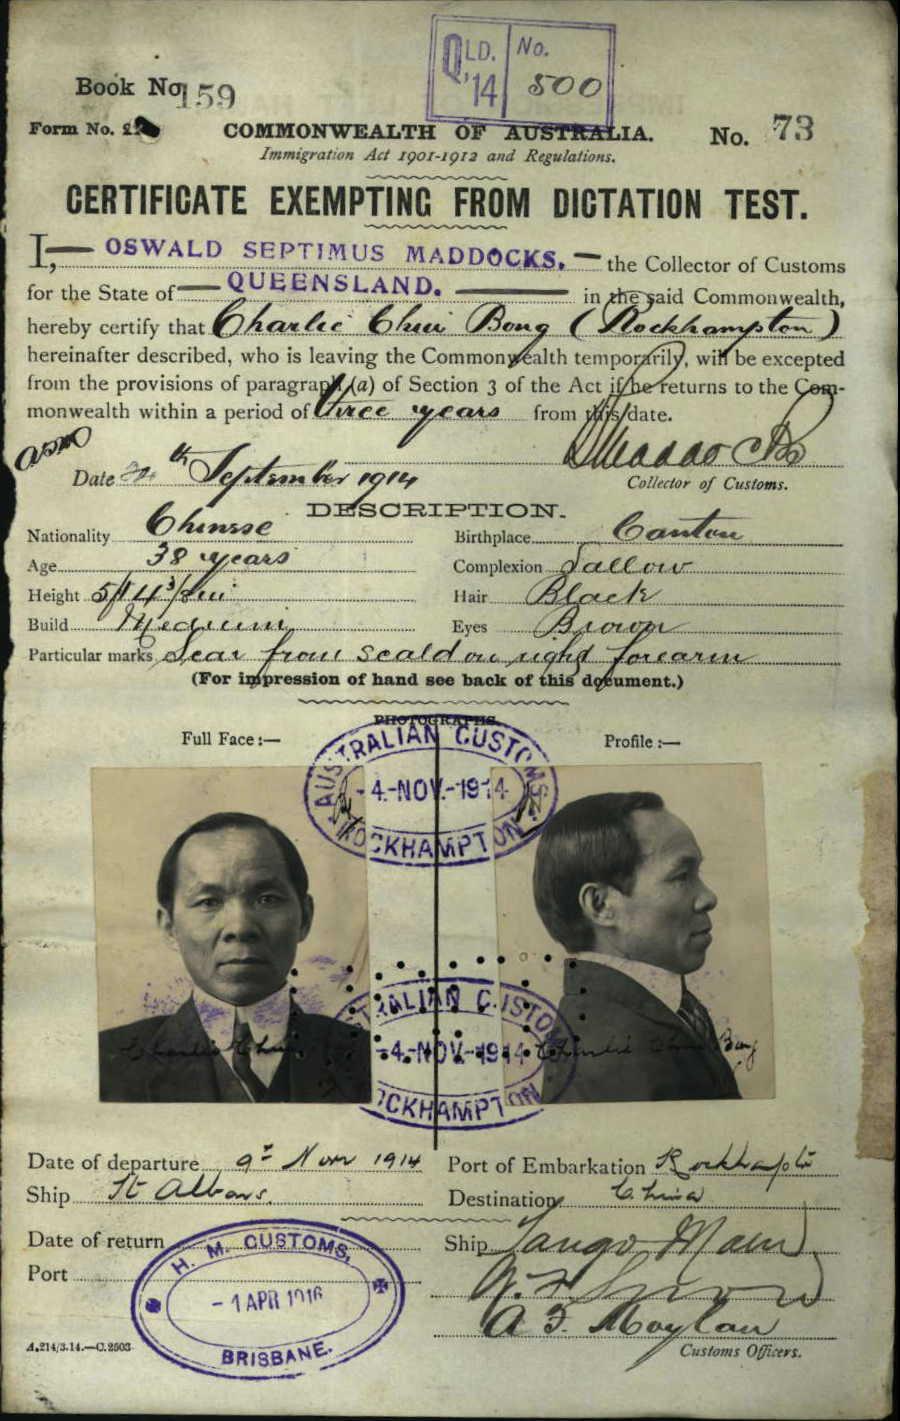 QLD. '14 No. 500
Book No. 159
Form No.
COMMONWEALTH OF AUSTRALIA. No. 73
Immigration Act 1901-1912 and Regulations.
CERTIFICATE EXEMPTING FROM DICTATION TEST.
I, OSWALD SEPTIMUS MADDOCKS, the Collector of Customs
for the State of QUEENSLAND. in the said Commonwealth,
hereby certify that Charlie Chui Bong (Rockhampton)
hereinafter described, who is leaving the Commonwealth temporarily, will be excepted
from the provisions of paragraph (a) of Section 3 of the Act if he returns to the Com-
monwealth within a period of three years from this date.
Date th September 1914
Collector of Customs.
DESCRIPTION.
Nationality Chinese Birthplace Canton
Age 38 years Complexion Sallow
Height 5ft 4 3/8 in Hair Black
Build Medium Eyes Brown
Particular marks Scar from scald on right forearm
(For impression of hand see back of this document.)
PHOTOGRAPHS.
Full Face :— Profile :—
AUSTRALIAN CUSTOMS
4-NOV.-1914
ROCKHAMPTON
AUSTRALIAN CUSTOMS
-4-NOV-1914
ROCKHAMPTON
Charlie Chui
Charlie Chui Bong
Date of departure 9th Nov 1914 Port of Embarkation Rockhampton
Ship St Albans. Destination China
Date of return Ship Tango Maru
Port
H. M. CUSTOMS,
- 1 APR 1916
BRISBANE.
A. F. Moylan
A.214/3.14.—C.2503 Customs Officers.